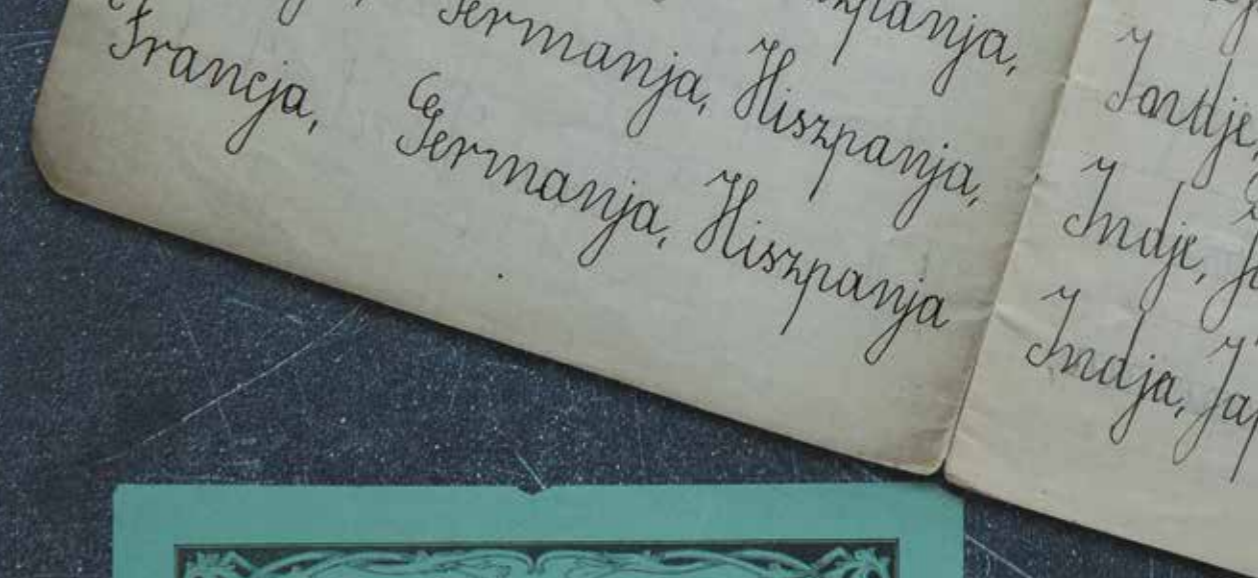 Germanja, Hiszpanja,
Francja, Germanja, Hiszpanja
Indje,
Indje,
Indja,